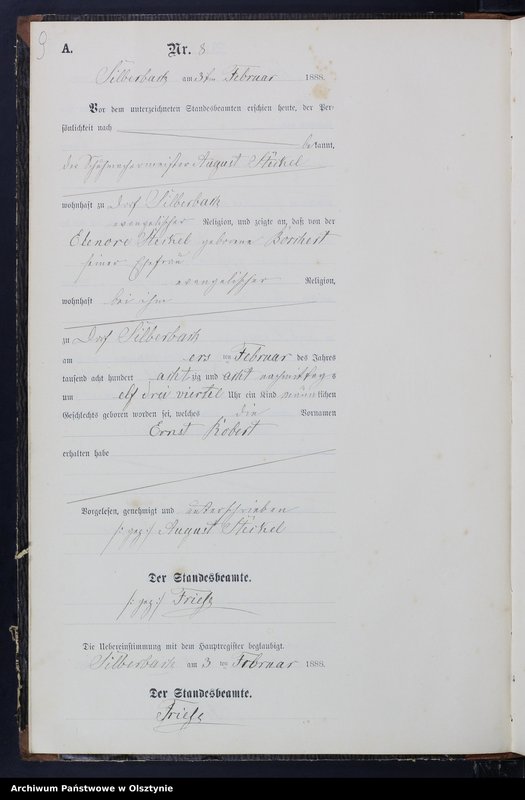 9
A. Nr. 8
Silberbach am 3ten Februar 1888.
Vor dem unterzeichneten Standesbeamten erschien heute, der Per-
sönlichkeit nach
bekannt,
der August Störkel
wohnhaft zu Dorf Silberbach
evangelischer Religion, und zeigte an, daß von der
Elenore Störkel geborene Borchert
seiner Ehefrau
evangelischer Religion,
wohnhaft bei ihm
zu Dorf Silberbach
am ersten Februar des Jahres
tausend acht hundert achtzig und acht nachmittags
um elf drei viertel Uhr ein Kind männlichen
Geschlechts geboren worden sei, welches die Vornamen
Ernst Robert
erhalten habe
Vorgelesen, genehmigt und unterschrieben
/: gez :/ August Störkel
Der Standesbeamte.
/: gez :/ Friese
Die Uebereinstimmung mit dem Hauptregister beglaubigt.
Silberbach am 3 ten Februar 1888.
Der Standesbeamte.
Friese
Archiwum Państwowe w Olsztynie